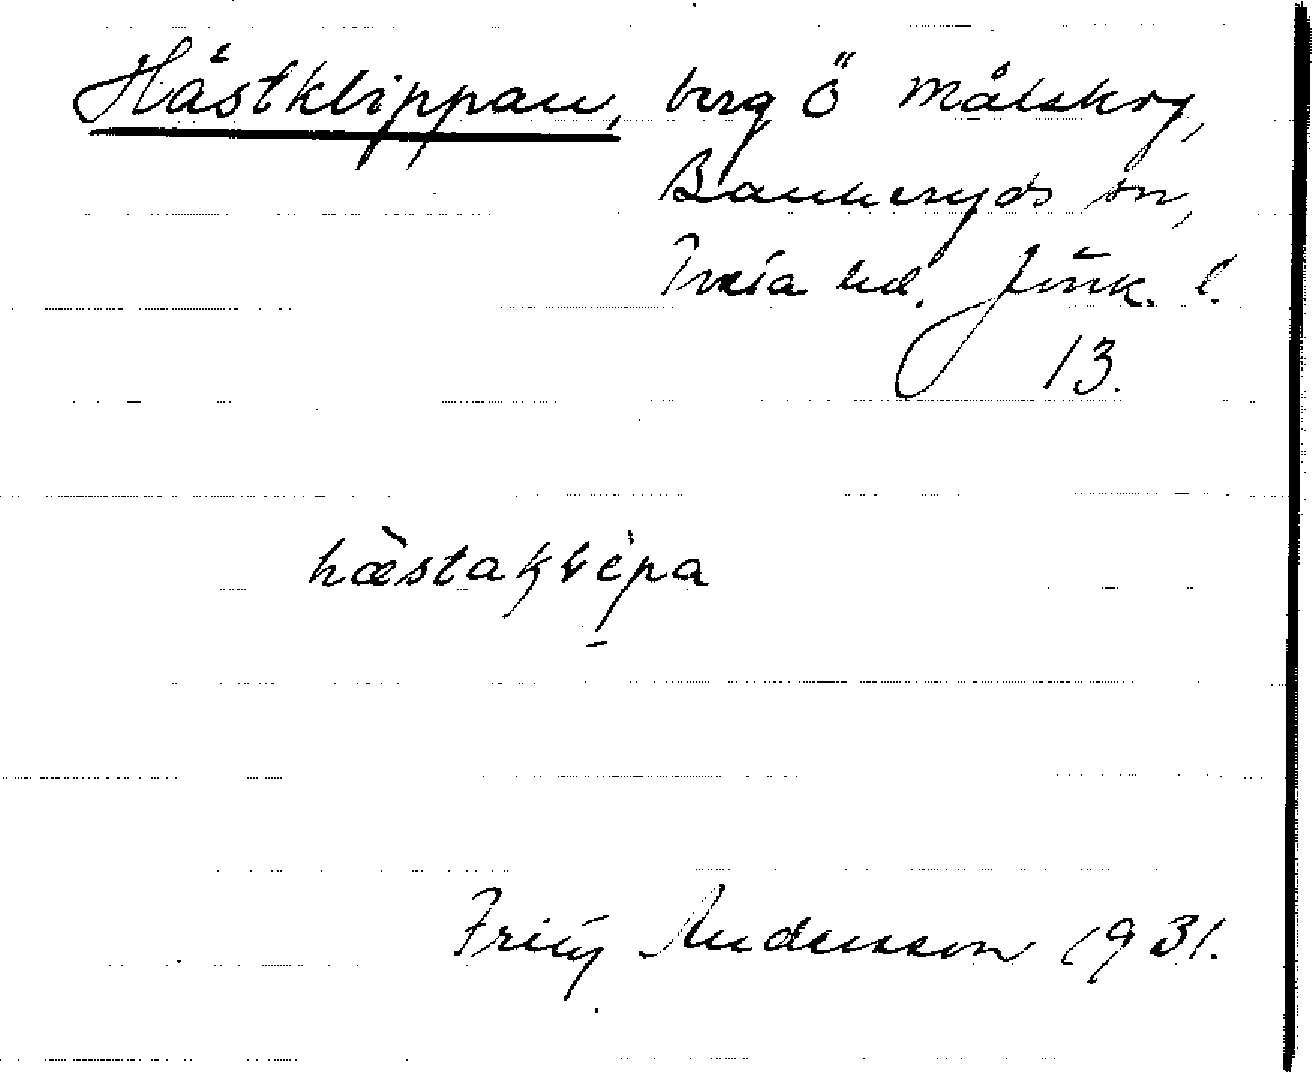 Hästklippan, berg Ö Målskog,
Bankeryds sn,
Tveta hd. Jönk. l.
13.
hæ̀stakḷépa
Frity Andersson 1931.